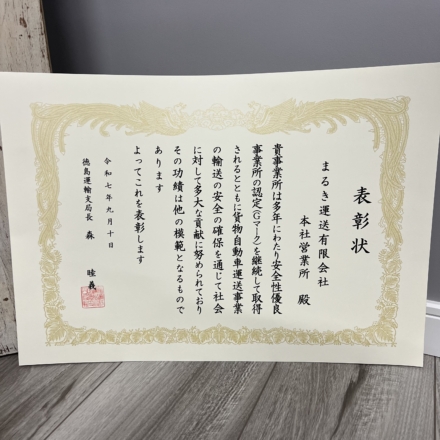 表彰状
まるき運送有限会社
本社営業所 殿
貴事業所は多年にわたり安全性優良
事業所の認定(Gマーク)を継続して取得
されるとともに貨物自動車運送事業
の輸送の安全の確保を通じて社会
に対して多大な貢献に努められており
その功績は他の模範となるもので
あります
よってこれを表彰します
令和七年九月十日
徳島運輸支局長 森 睦義